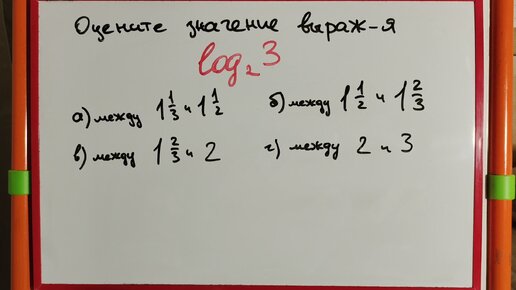 Оцените значение выраж-я
log₂3
а) между 1 1/3 и 1 1/2 б) между 1 1/2 и 1 2/3
в) между 1 2/3 и 2 г) между 2 и 3